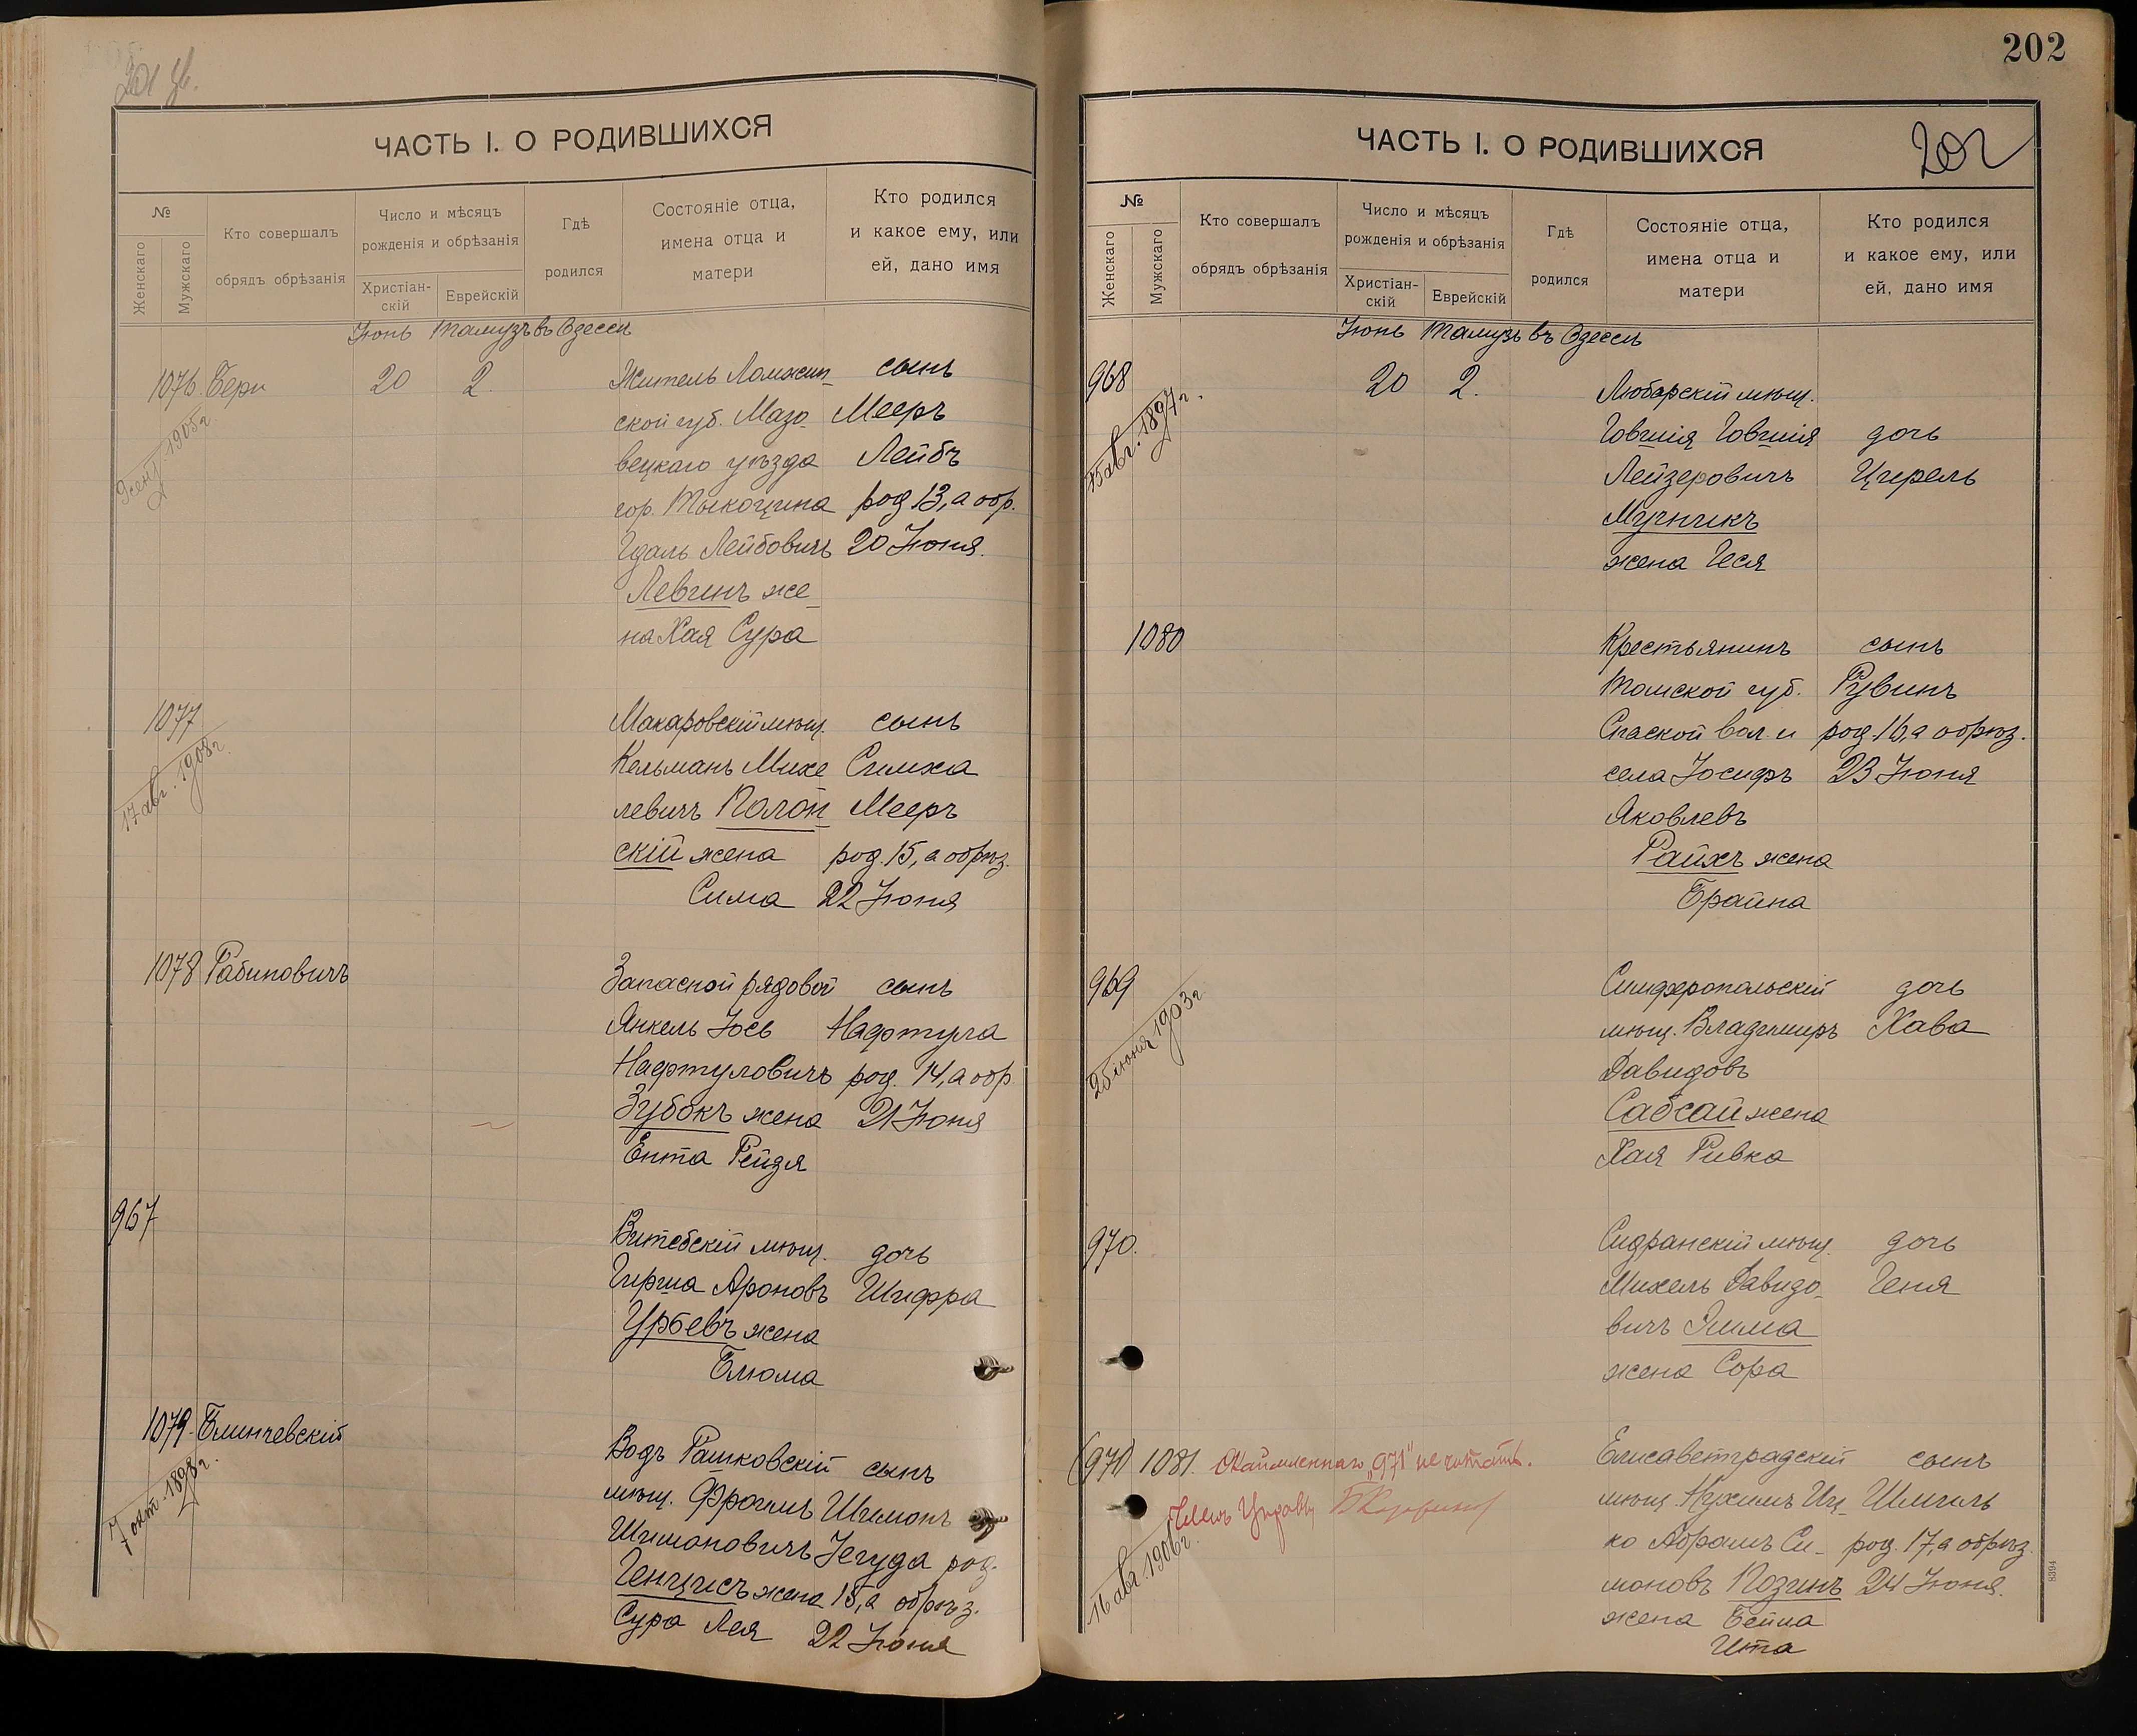 ЧАСТЬ I. О РОДИВШИХСЯ
№
Женскаго
Мужскаго
Кто совершалъ
обрядъ обрѣзанія
Число и мѣсяцъ
рожденія и обрѣзанія
Христіан-
скій
Еврейскій
Гдѣ
родился
Состояніе отца,
имена отца и
матери
Кто родился
и какое ему, или
ей, дано имя
Іюнь Тамузъ въ Одессѣ
1076. Бери 20 2. Житель Ломжин- сынъ
ской губ. Мазо- Мееръ
вецкаго уѣзда Лейбъ
гор. Тыкоцина род 13, а обр.
Гдаль Лейбовичъ 20 Іюня.
Левинъ же-
на Хая Сура
1905г
1077 Макаровскій мѣщ. сынъ
Кельманъ Михе Симха
левичъ Полон- Мееръ
скій жена род. 15, а обрѣз.
Сима 22 Іюня
17 авг. 1908г.
1078 Рабиновичъ Запасной рядовой сынъ
Янкель Іось Нафтула
Нафтуловичъ род. 14, а обр.
Зубокъ жена 21 Іюня
Ента Рейзя
967 Витебскій мѣщ. дочь
Гирша Ароновъ Шифра
Урьевъ жена
Блюма
1079. Блинчевскій Водъ Рашковскій сынъ
мѣщ. Фроимъ Шимонъ
Шимоновичъ Іегуда род.
Генцисъ жена 15, а обрѣз.
Сура Лея 22 Іюня
7 окт. 1898г.
202
ЧАСТЬ I. О РОДИВШИХСЯ
202
№
Женскаго
Мужскаго
Кто совершалъ
обрядъ обрѣзанія
Число и мѣсяцъ
рожденія и обрѣзанія
Христіан-
скій
Еврейскій
Гдѣ
родился
Состояніе отца,
имена отца и
матери
Кто родился
и какое ему, или
ей, дано имя
Іюнь Тамузъ въ Одессѣ
968 20 2. Любарскій мѣщ.
Говшія Говшія дочь
Лейзеровичъ Цирель
Мучникъ
жена Геся
15 авг. 1897г.
1080 Крестьянинъ сынъ
Томской губ. Рувинъ
Спаской вол. и род. 16, а обрѣз.
села Іосифъ 23 Іюня
Яковлевъ
Райхъ жена
Брайна
969 Симферопольскій дочь
мѣщ. Владимиръ Хава
Давидовъ
Сабсай жена
Хая Ривка
25 іюня 1903г
970. Сидранскій мѣщ. дочь
Михель Давидо- Геня
вичъ Зима
жена Сора
(971) 1081. Окаймленнаго „971" не читать. Елисаветградскій сынъ
Членъ Управы мѣщ. Нухимъ Иц- Шмиль
ко Абрамъ Си- род. 17, а обрѣз.
моновъ Позинъ 24 Іюня.
жена Бейла
Ита
16 авг 1906г.
8394